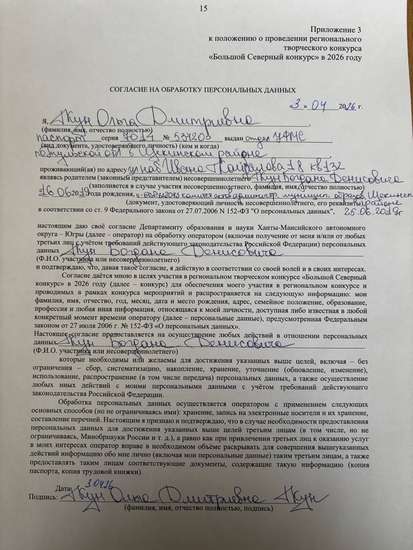 15
Приложение 3
к положению о проведении регионального
творческого конкурса
«Большой Северный конкурс» в 2026 году
СОГЛАСИЕ НА ОБРАБОТКУ ПЕРСОНАЛЬНЫХ ДАННЫХ
3.04 2026г.
Я, Жун Ольга Дмитриевна
(фамилия, имя, отчество полностью)
паспорт серия 7014 № выдан отдел УФМС
(вид документа, удостоверяющего личность) (кем и когда)
по Тульской обл в Щекинском районе
проживающий(ая) по адресу
являясь родителем (законным представителем) несовершеннолетнего Жун Богдана Денисовича
(заполняется в случае участия несовершеннолетнего, фамилия, имя, отчество полностью)
16.06.2019 года рождения,
(документ, удостоверяющий личность несовершеннолетнего, его реквизиты)
в соответствии со ст. 9 Федерального закона от 27.07.2006 N 152-ФЗ "О персональных данных",
настоящим даю своё согласие Департаменту образования и науки Ханты-Мансийского автономного
округа – Югры (далее – оператор) на обработку оператором (включая получение от меня и/или от любых
третьих лиц с учётом требований действующего законодательства Российской Федерации) персональных
данных Жун Богдана Денисовича
(Ф.И.О. участника или несовершеннолетнего)
и подтверждаю, что, давая такое согласие, я действую в соответствии со своей волей и в своих интересах.
Согласие даётся мною в целях участия в региональном творческом конкурсе «Большой Северный
конкурс» в 2026 году (далее – конкурс) для обеспечения моего участия в региональном конкурсе и
проводимых в рамках конкурса и распространяется на следующую информацию: мои
фамилия, имя, отчество, год, месяц, дата и место рождения, адрес, семейное положение, образование,
профессия и любая иная информация, относящаяся к моей личности, доступная либо известная в любой
конкретный момент времени оператору (далее – персональные данные), предусмотренная Федеральным
законом от 27 июля 2006 г. № 152-ФЗ «О персональных данных».
Настоящее согласие предоставляется на осуществление любых действий в отношении персональных
данных Жун Богдана Денисовича
(Ф.И.О. участника или несовершеннолетнего)
которые необходимы или желаемы для достижения указанных выше целей, включая – без
ограничения – сбор, систематизацию, накопление, хранение, уточнение (обновление, изменение),
использование, распространение (в том числе передачу) персональных данных, а также осуществление
любых иных действий с моими персональными данными с учётом требований действующего
законодательства Российской Федерации.
Обработка персональных данных осуществляется оператором с применением следующих
основных способов (но не ограничиваясь ими): хранение, запись на электронные носители и их хранение,
составление перечней. Настоящим я признаю и подтверждаю, что в случае необходимости предоставления
персональных данных для достижения указанных выше целей третьим лицам (в том числе, но не
ограничиваясь, Минобрнауки России и т. д.), а равно как при привлечении третьих лиц к оказанию услуг
в моих интересах оператор вправе в необходимом объёме раскрывать для совершения вышеуказанных
действий информацию обо мне лично (включая мои персональные данные) таким третьим лицам, а также
предоставлять таким лицам соответствующие документы, содержащие такую информацию (копии
паспорта, копия трудовой книжки)
Дата:
Подпись: Жун Ольга Дмитриевна Жун
(фамилия, имя, отчество полностью, подпись)